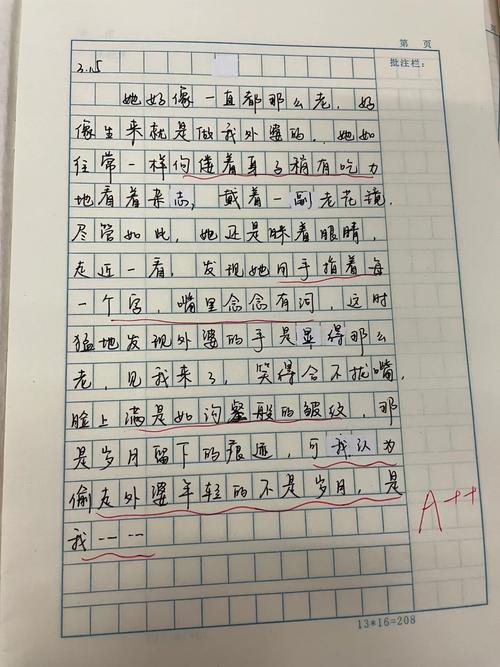 第 页
批注栏:
3.15
她好像一直都那么老，好
像生来就是做我外婆的，她如
往常一样佝偻着身子稍有吃力
地看着杂志，戴着一副老花镜，
尽管如此，她还是眯着眼睛，
走近一看，发现她用手指着每
一个字，嘴里念念有词，这时
猛地发现外婆的手是显得那么
老，见我来了，笑得合不拢嘴，
脸上满是如沟壑般的皱纹，那
是岁月留下的痕迹，可我认为
偷走外婆年轻的不是岁月，是
我……
A++
13*16=208